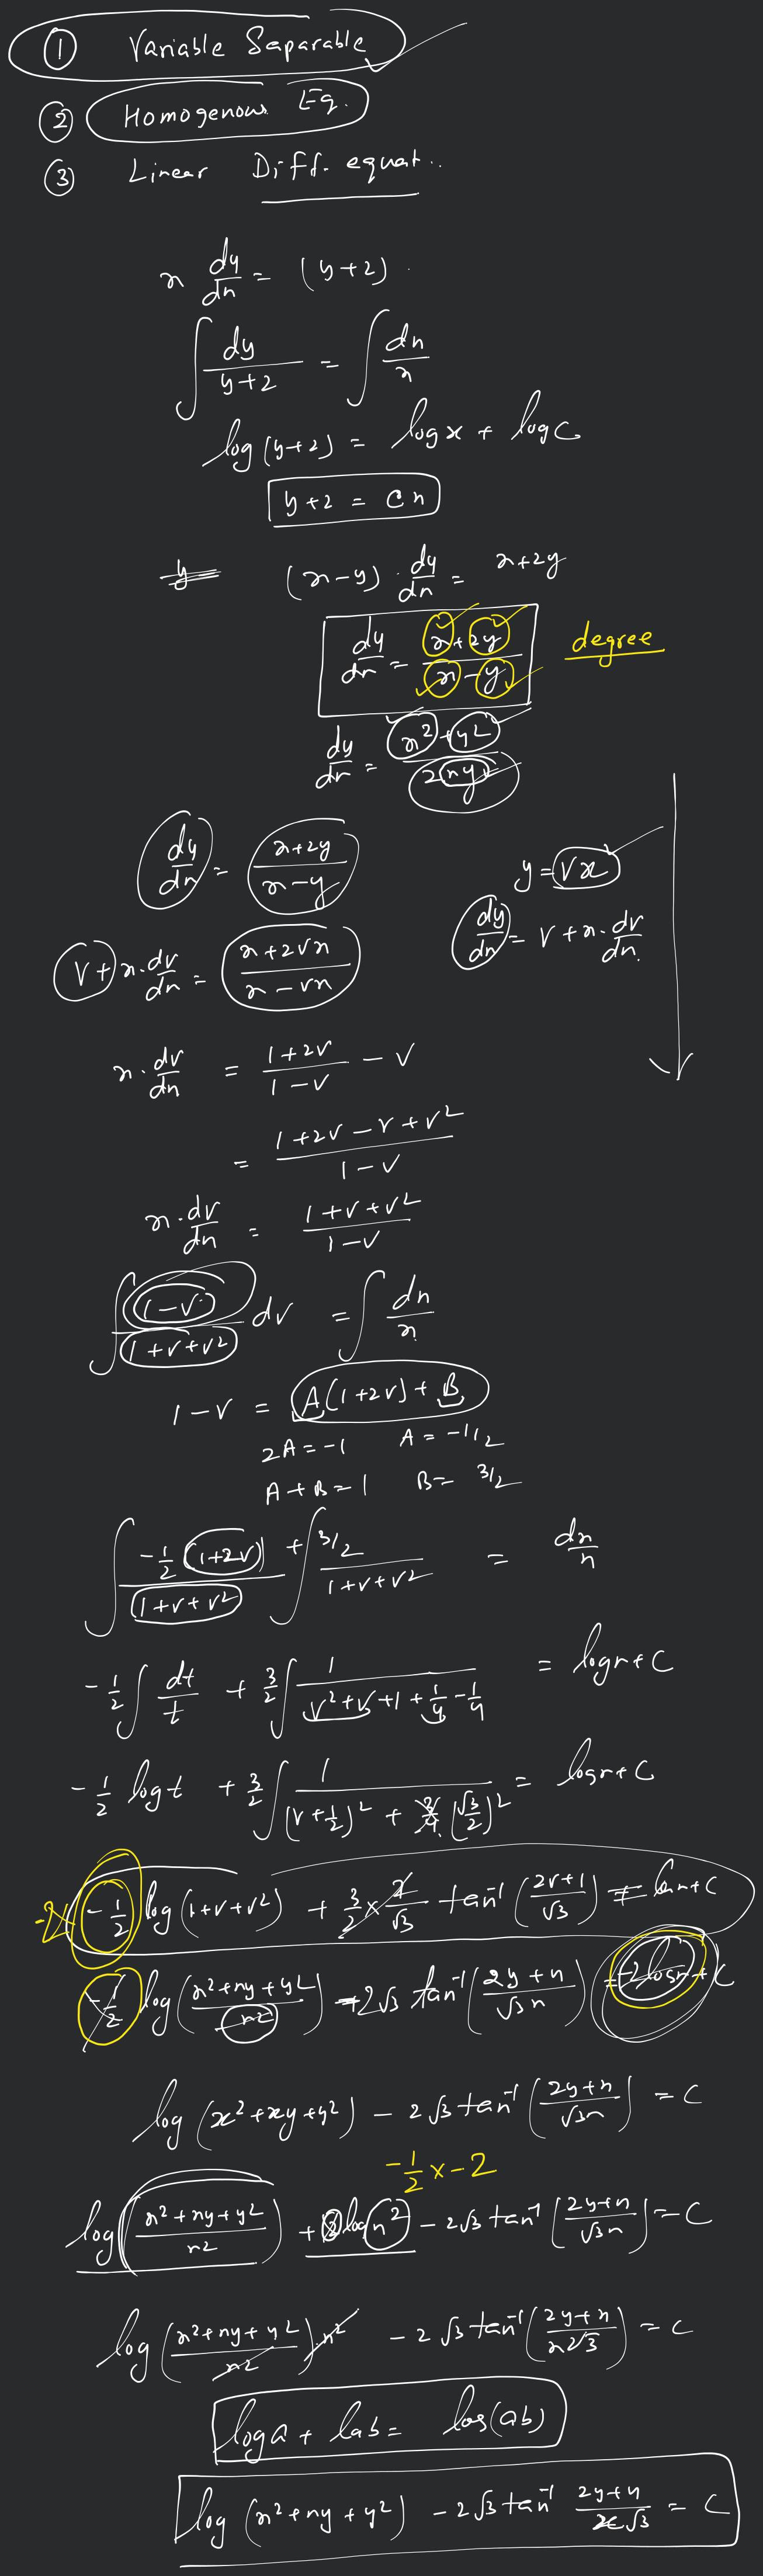 ① Variable Saparable
② Homogenous Eq.
③ Linear Diff. equat..
x dy/dx = (y+2).
∫ dy/(y+2) = ∫ dx/x
log(y+2) = log x + log c
y+2 = cx
y (x-y).dy/dx = x+2y
dy/dx = (x+2y)/(x-y) degree
dy/dx = (x²+y²)/(2xy)
dy/dx = (x+2y)/(x-y)
y = Vx
dy/dx = V+x.dv/dx
V+x.dv/dx = (x+2Vx)/(x-Vx)
x.dv/dx = (1+2V)/(1-V) - V
= (1+2V-V+V²)/(1-V)
x.dv/dx = (1+V+V²)/(1-V)
∫ (1-V)/(1+V+V²) dv = ∫ dx/x
1-V = A(1+2V)+B
2A=-1 A=-1/2
A+B=1 B= 3/2
∫ -1/2 (1+2V)/(1+V+V²) + ∫ (3/2)/(1+V+V²) = dx/x
-1/2 ∫ dt/t + 3/2 ∫ 1/(V²+V+1+1/4-1/4) = log x+C
-1/2 log t + 3/2 ∫ 1/((V+1/2)² + (√3/2)²) = log x+C
-2x -1/2 log(1+V+V²) + 3/2 × 2/√3 tan⁻¹((2V+1)/√3) = ln x+C
-1/2 log((x²+xy+y²)/x²) -2√3 tan⁻¹((2y+x)/(√3x)) = -2log x + C
log(x²+xy+y²) - 2√3 tan⁻¹((2y+x)/(√3x)) = C
-1/2 x-2
log((x²+xy+y²)/x²) + log(x²) - 2√3 tan⁻¹((2y+x)/(√3x)) = C
log((x²+xy+y²)/x²).x² - 2√3 tan⁻¹((2y+x)/(x2√3)) = C
log a + lab = log(ab)
log(x²+xy+y²) - 2√3 tan⁻¹ (2y+x)/(x√3) = C